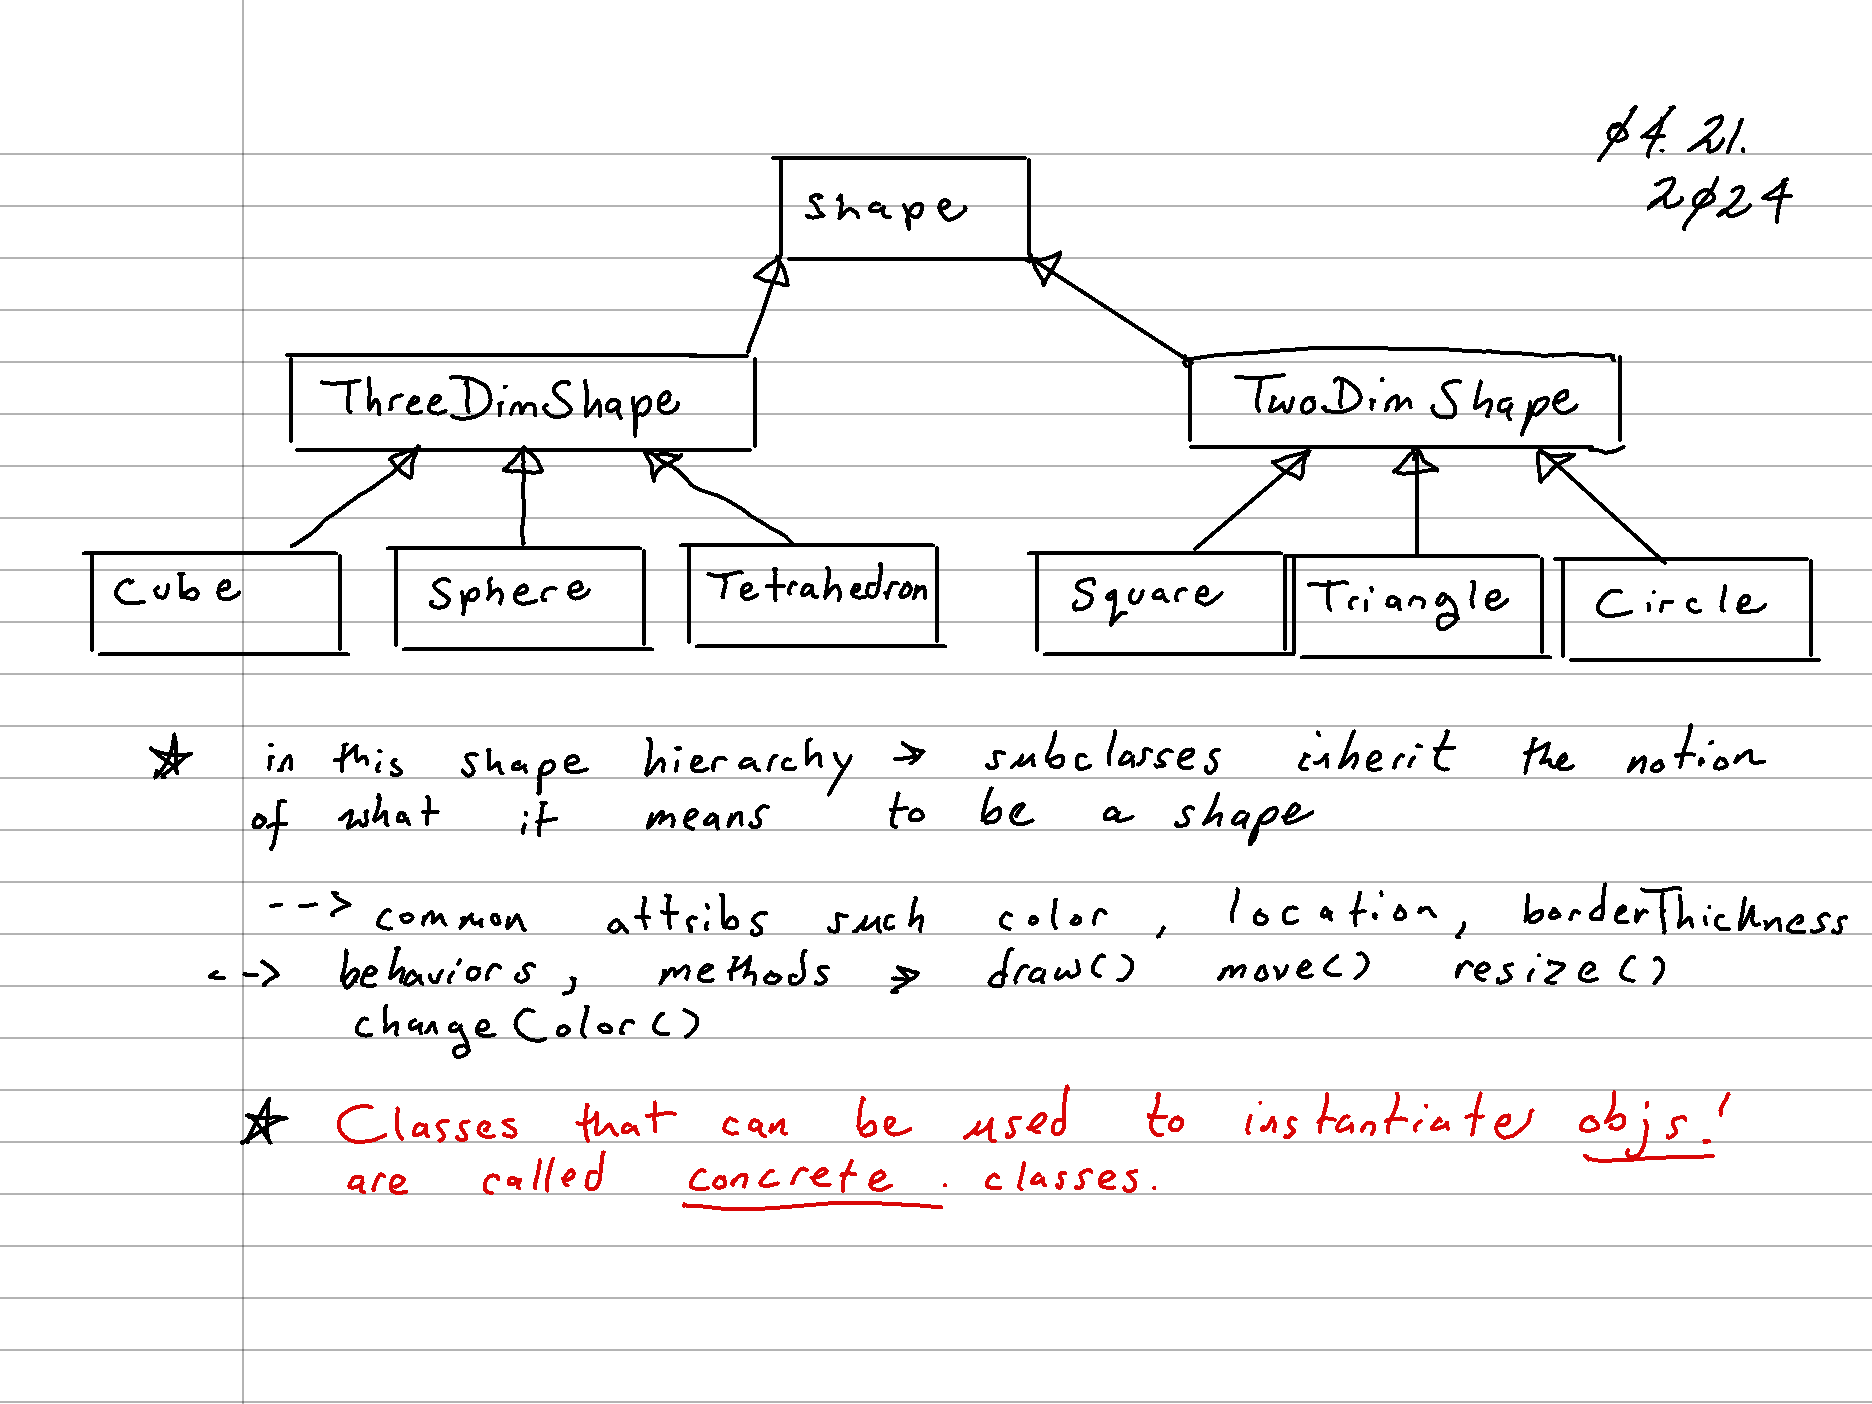 04. 21.
2024
shape
ThreeDimShape
TwoDimShape
Cube
Sphere
Tetrahedron
Square
Triangle
Circle
☆ in this shape hierarchy → subclasses inherit the notion
of what it means to be a shape
--> common attribs such color, location, borderThickness
--> behaviors, methods → draw() move() resize()
changeColor()
☆ Classes that can be used to instantiate objs!
are called concrete. classes.